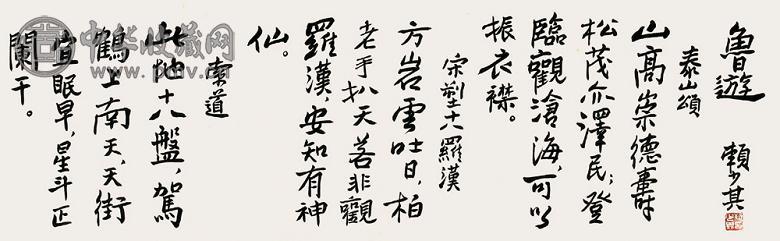 魯遊
賴少其
泰山頌
山高崇德壽
松茂亦澤民；登
臨觀滄海，可以
振衣襟。
宋塑十八羅漢
方岩雲吐日，柏
老手扒天若非觀
羅漢，安知有神
仙。
索道
此地十八盤，駕
鶴上南天，天街
宜眠早，星斗正
闌干。
中华收藏网